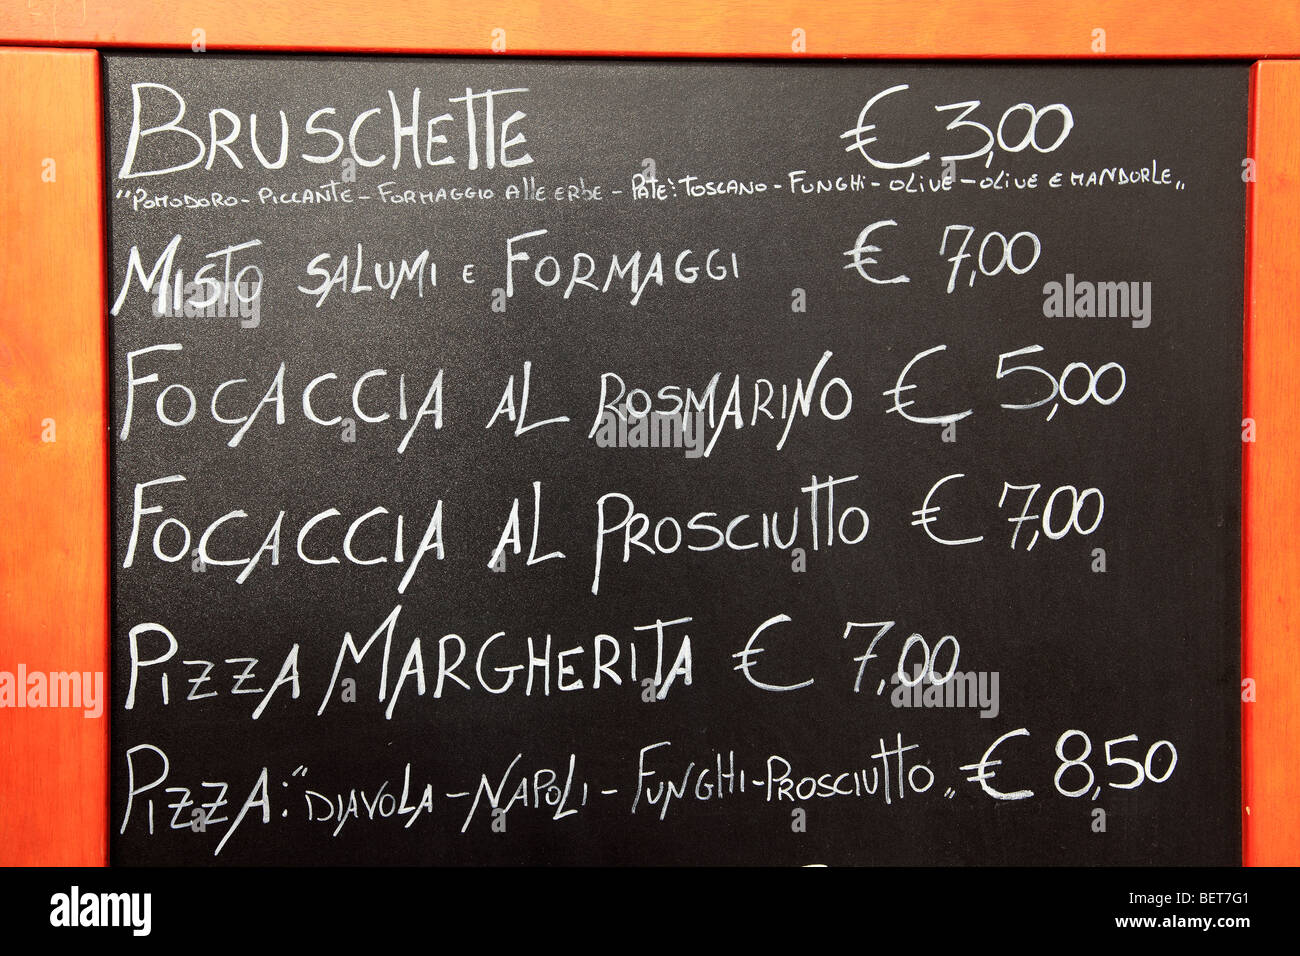 BRUSCHETTE € 3,00
"POMODORO - PICCANTE - FORMAGGIO Alle ERbE - PATE': TOSCANO - FUNGHI - OLIVE - OLIVE E MANDORLE"
MISTO SALUMI E FORMAGGI € 7,00
FOCACCIA AL ROSMARINO € 5,00
FOCACCIA AL PROSCIUTTO € 7,00
PIZZA MARGHERITA € 7,00
PIZZA: "DIAVOLA - NAPOLI - FUNGHI - PROSCIUTTO" € 8,50
alamy
Image ID: BET7G1
www.alamy.com